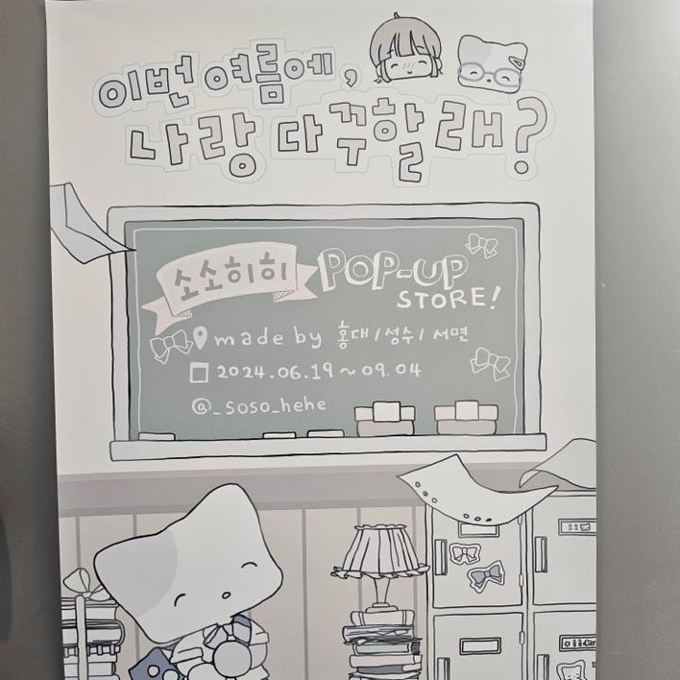 이번 여름에,
나랑 다꾸할래?
소소히히 POP-UP
STORE!
made by 홍대/성수/서면
2024.06.19~09.04
@_soso_hehe